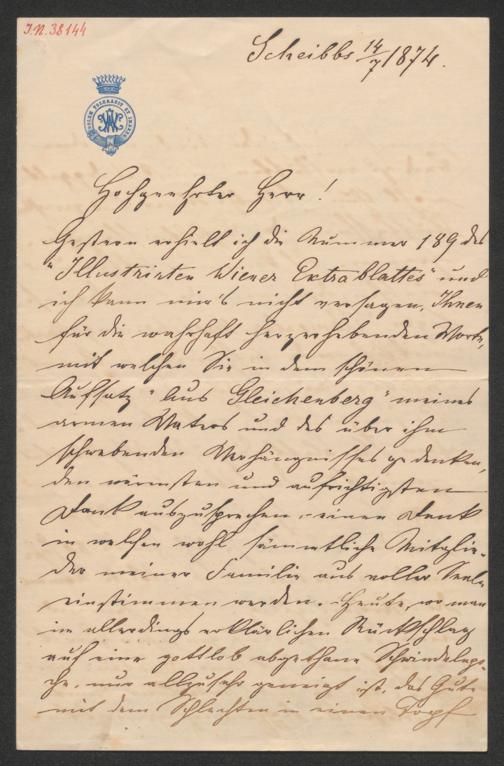 I.N. 38144
Scheibbs 14/7 1874.
Hochgeehrter Herr!
Gestern erhielt ich die Nummer 189 des
"Illustrirten Wiener Extrablattes" und
ich kann mir's nicht versagen, Ihnen
für die wahrhaft herzerhebenden Worte,
mit welchen Sie in dem schönen
Aufsatz "Aus Gleichenberg" meines
armen Vaters und des über ihm
schwebenden Verhängnisses gedenken,
den wärmsten und aufrichtigsten
Dank auszusprechen, einen Dank
in welchen wohl sämmtliche Mitglie-
der meiner Familie aus voller Seele
einstimmen werden. Heute, wo man
im allerdings erklärlichen Rückschlag
auf eine gottlob abgethane Schwindelepo-
che, nur allzusehr geneigt ist, das Gute
mit dem Schlechten in einen Topf